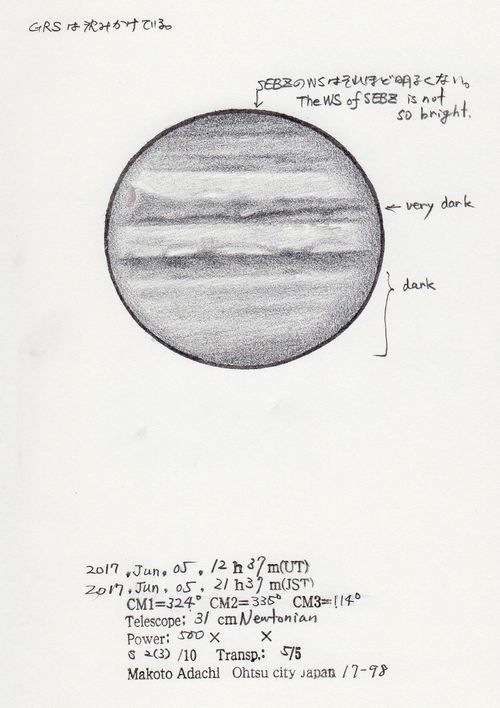 GRSは沈みかけている。
SEBZのWSはそれほど明るくない。
The WS of SEBZ is not
so bright.
very dark
dark
2017, Jun, 05, 12 h 37 m(UT)
2017, Jun, 05, 21 h 37 m(JST)
CM1=324° CM2=335° CM3=114°
Telescope: 31 cm Newtonian
Power: 500 × ×
S 2(3) /10 Transp.: 5/5
Makoto Adachi Ohtsu city Japan 17-98